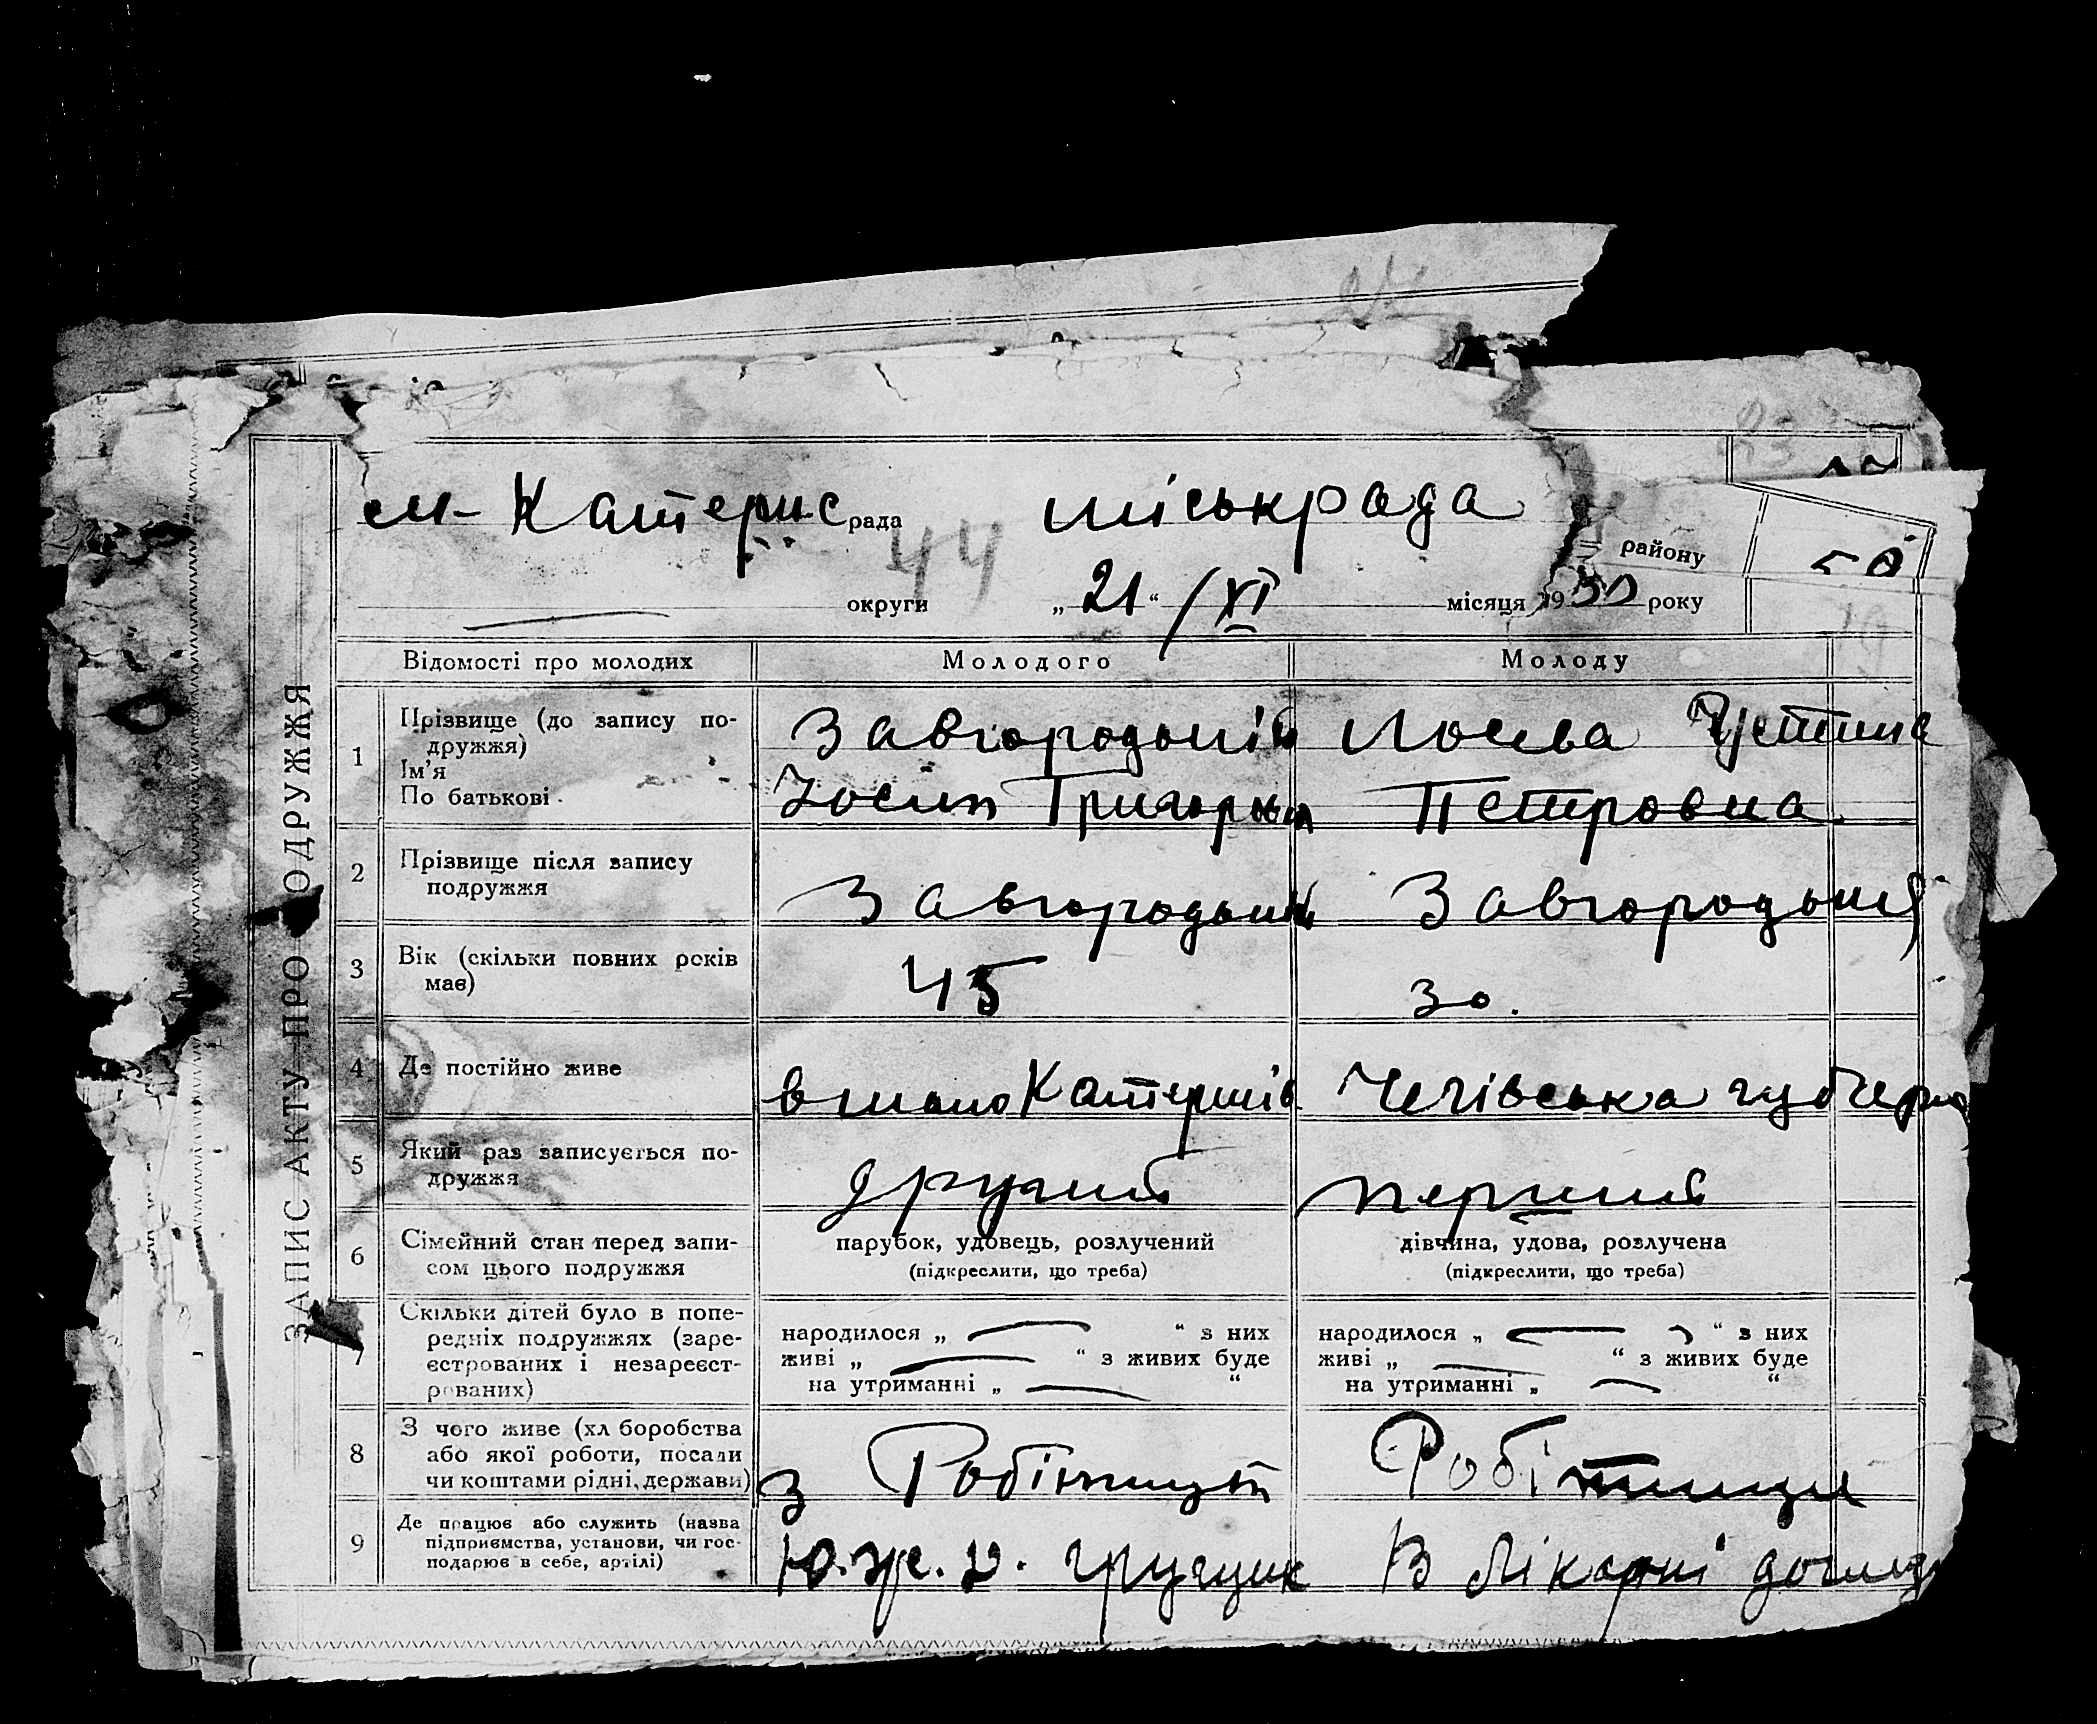 ЗАПИС АКТУ ПРО ОДРУЖЖЯ
м- Катерис рада міськрада району
44
округи „21“ /XI місяця 1930 року
Відомості про молодих Молодого Молоду
1 Прізвище (до запису по-
дружжя)
Ім’я
По батькові
Завгородьній
Йосип Григорьев
Лосева Устина
Петровна
2 Прізвище після запису
подружжя
Завгородьній Завгородьня
3 Вік (скільки повних років
має)
45 30.
4 Де постійно живе
в Катеринів губерн
5 Який раз записується по-
дружжя
другий перший
6 Сімейний стан перед запи-
сом цього подружжя
парубок, удовець, розлучений
(підкреслити, що треба)
дівчина, удова, розлучена
(підкреслити, що треба)
7 Скільки дітей було в попе-
редніх подружжях (заре-
єстрованих і незареєст-
рованих)
народилося „ — “ з них
живі „ — “ з живих буде
на утриманні „ — “
народилося „ — “ з них
живі „ — “ з живих буде
на утриманні „ — “
8 З чого живе (хл боробства
або якої роботи, посади
чи коштами рідні, держави)
Робітниця
9 Де працює або служить (назва
підприємства, установи, чи гос-
подарює в себе, артілі)
Ю.ж.д. грущик В Лікарні